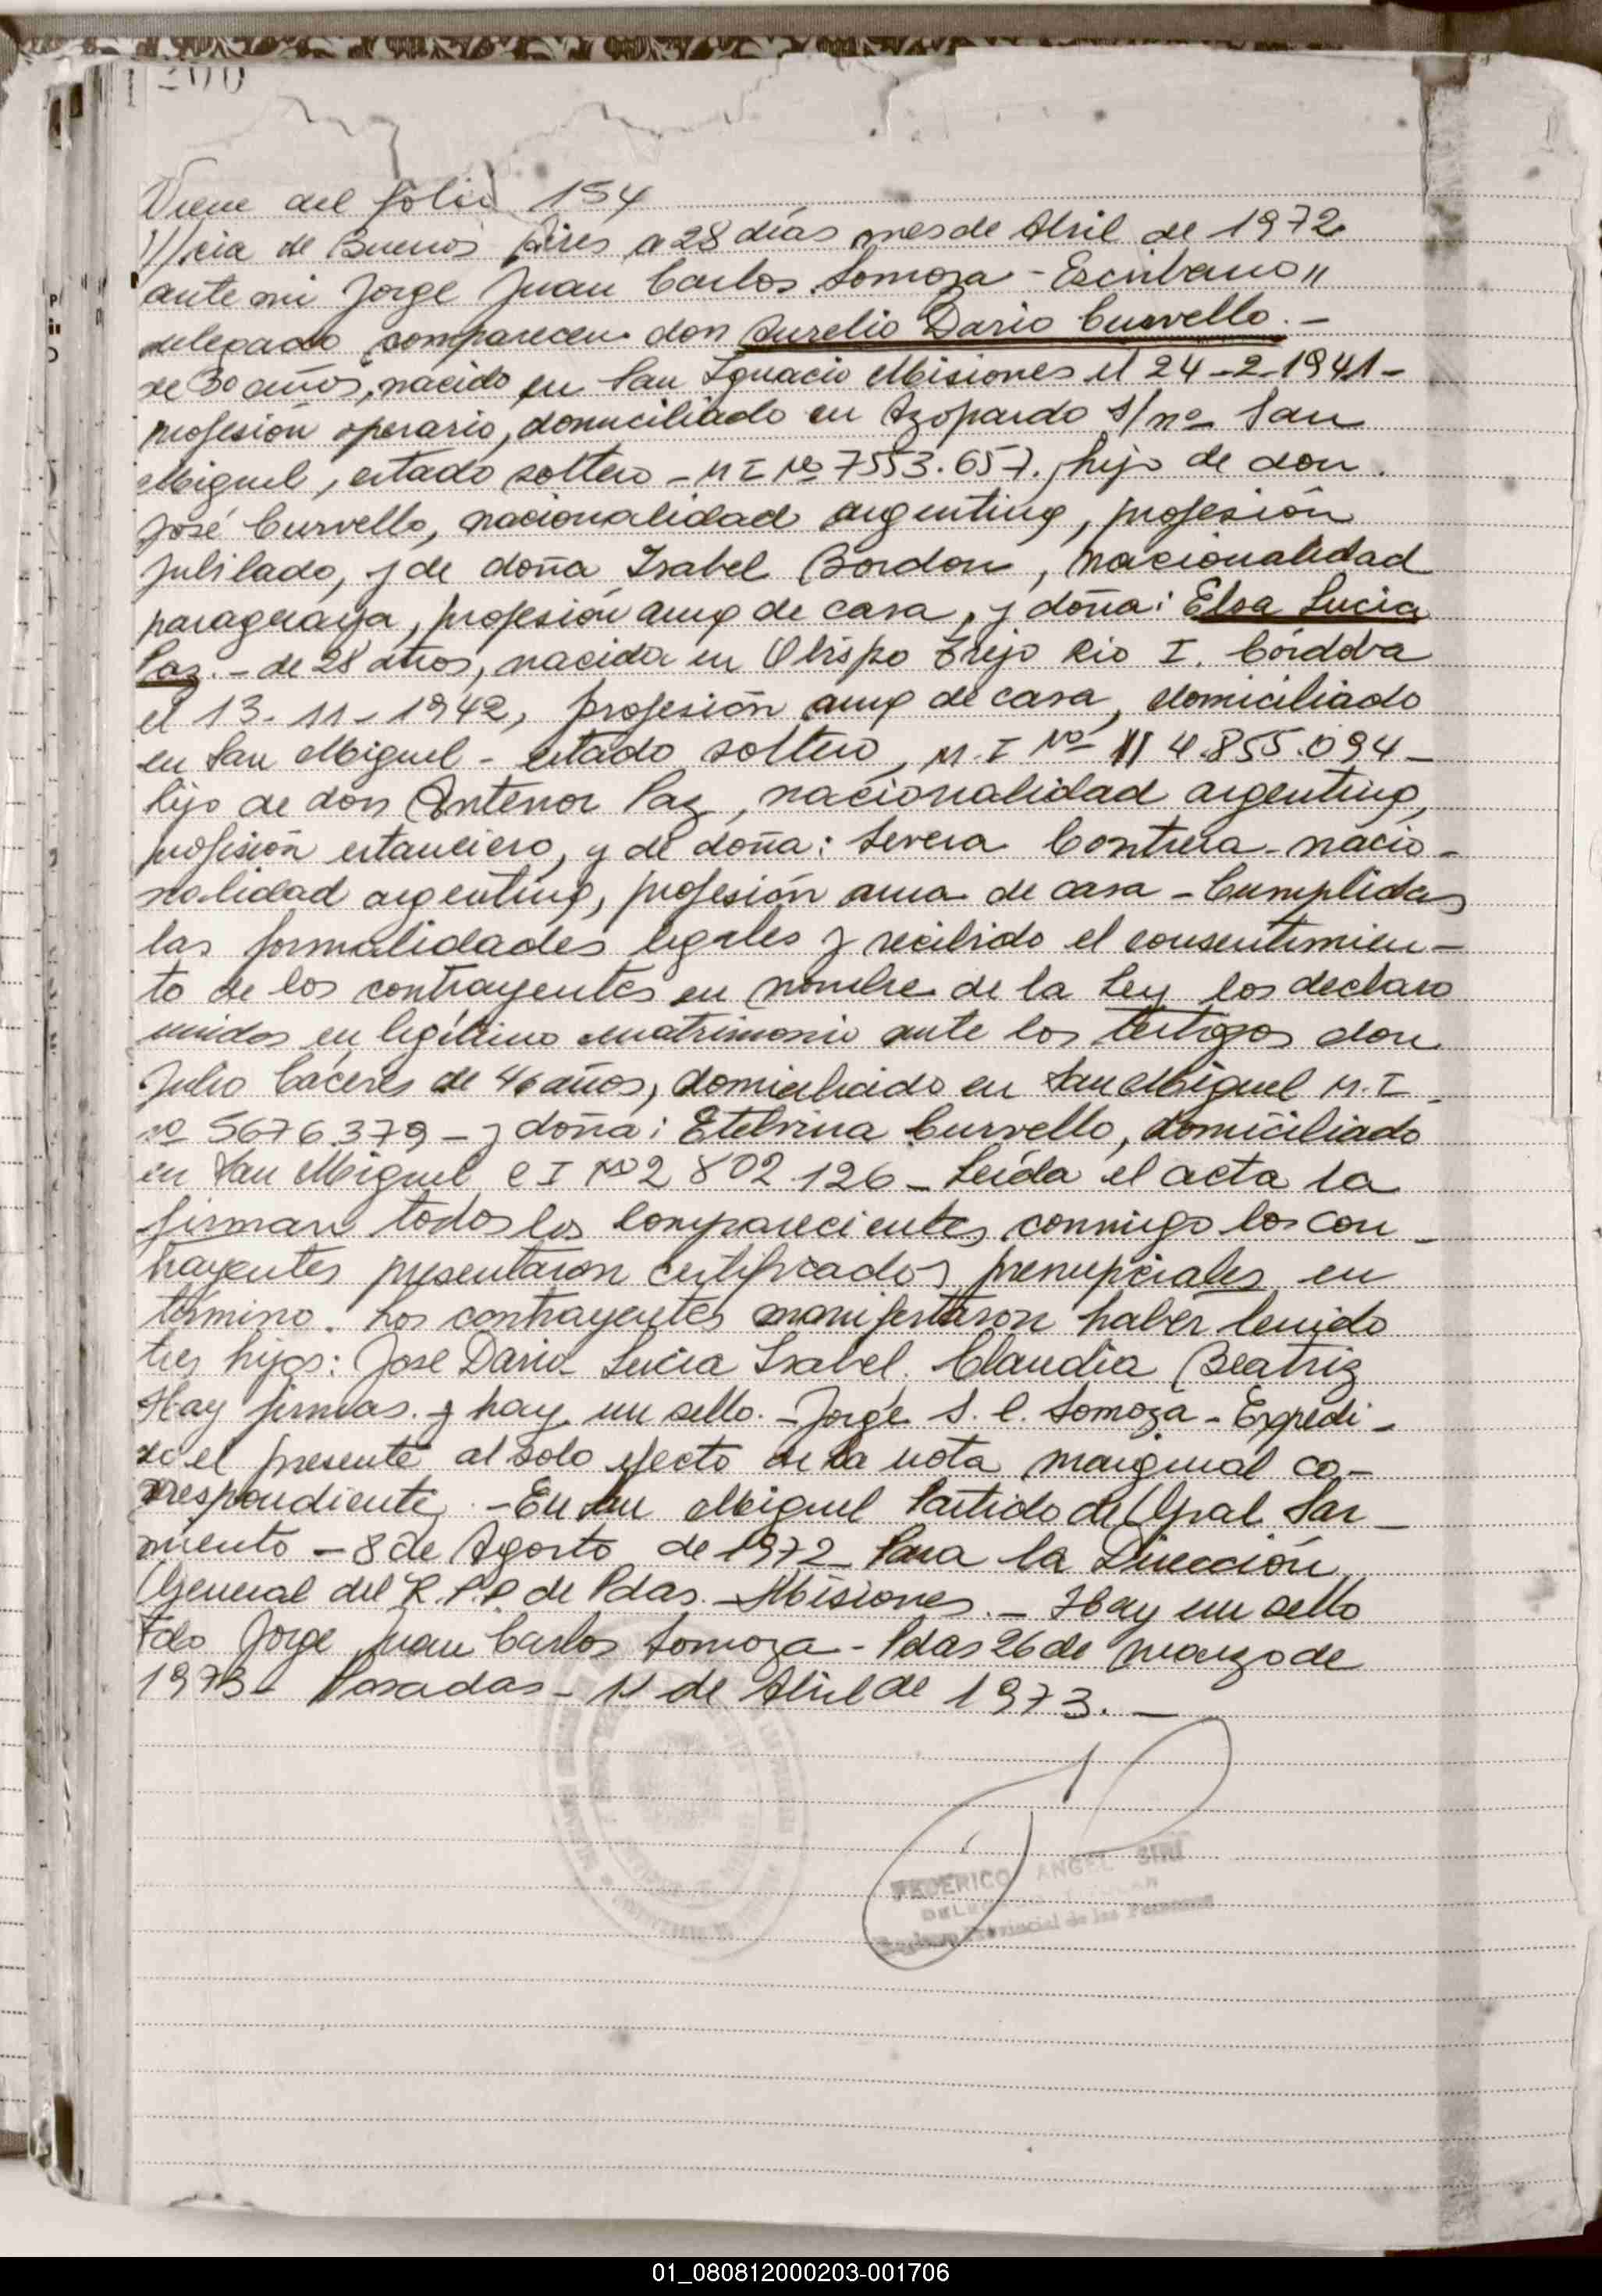 200
Viene del folio 154
///cia de Buenos Aires a 28 días mes de Abril de 1972
ante mi Jorge Juan Carlos Somoza - Escribano "
delegado comparecen don Aurelio Dario Curvello. -
de 30 años, nacido en San Ignacio Misiones el 24-2-1941-
profesión operario, domiciliado en Azopardo s/nº San
Miguel, estado soltero - M I Nº 7553.657. hijo de don
José Curvello, nacionalidad argentina, profesión
jubilado, y de doña Isabel Bordon, nacionalidad
paraguaya, profesión ama de casa, y doña: Elsa Lucia
Paz. - de 28 años, nacida en Obispo Trejo Rio I. Córdoba
el 13-11-1942, profesión ama de casa, domiciliado
en San Miguel - estado soltero, M. I Nº 4.855.094 -
hijo de don Antenor Paz, nacionalidad argentina,
profisión estanciero, y de doña: Severa Contrera - nacio-
nalidad argentina, profesión ama de casa - Cumplidas
las formalidades legales y recibido el consentimien-
to de los contrayentes en nombre de la Ley los declaro
unidos en legítimo matrimonio ante los testigos don
Julio Cáceres de 46 años, domiciliado en San Miguel M. I
nº 5676.379 - y doña: Etelvina Curvello, domiciliado
en San Miguel C I Nº 2 802.126 - Leída el acta la
firman todos los comparecientes conmigo los con-
trayentes presentaron certificados prenupciales en
término. Los contrayentes manifestaron haber tenido
tres hijos: Jose Dario Lucia Isabel. Claudia Beatriz
Hay firmas. y hay un sello. - Jorge J. C. Somoza - Expedi-
do el presente al solo efecto de la nota marginal co-
rrespondiente. - En San Miguel Partido de Gral. Sar-
miento - 8 de Agosto de 1972 - Para la Dirección
General del R. P. P de Pdas. - Misiones. - Hay un sello
Fdo Jorge Juan Carlos Somoza - Pdas 26 de marzo de
1973 - Posadas - de Abril de 1973. -
FEDERICO ANGEL SIRI
Registro Provincial de las Personas
01_080812000203-001706